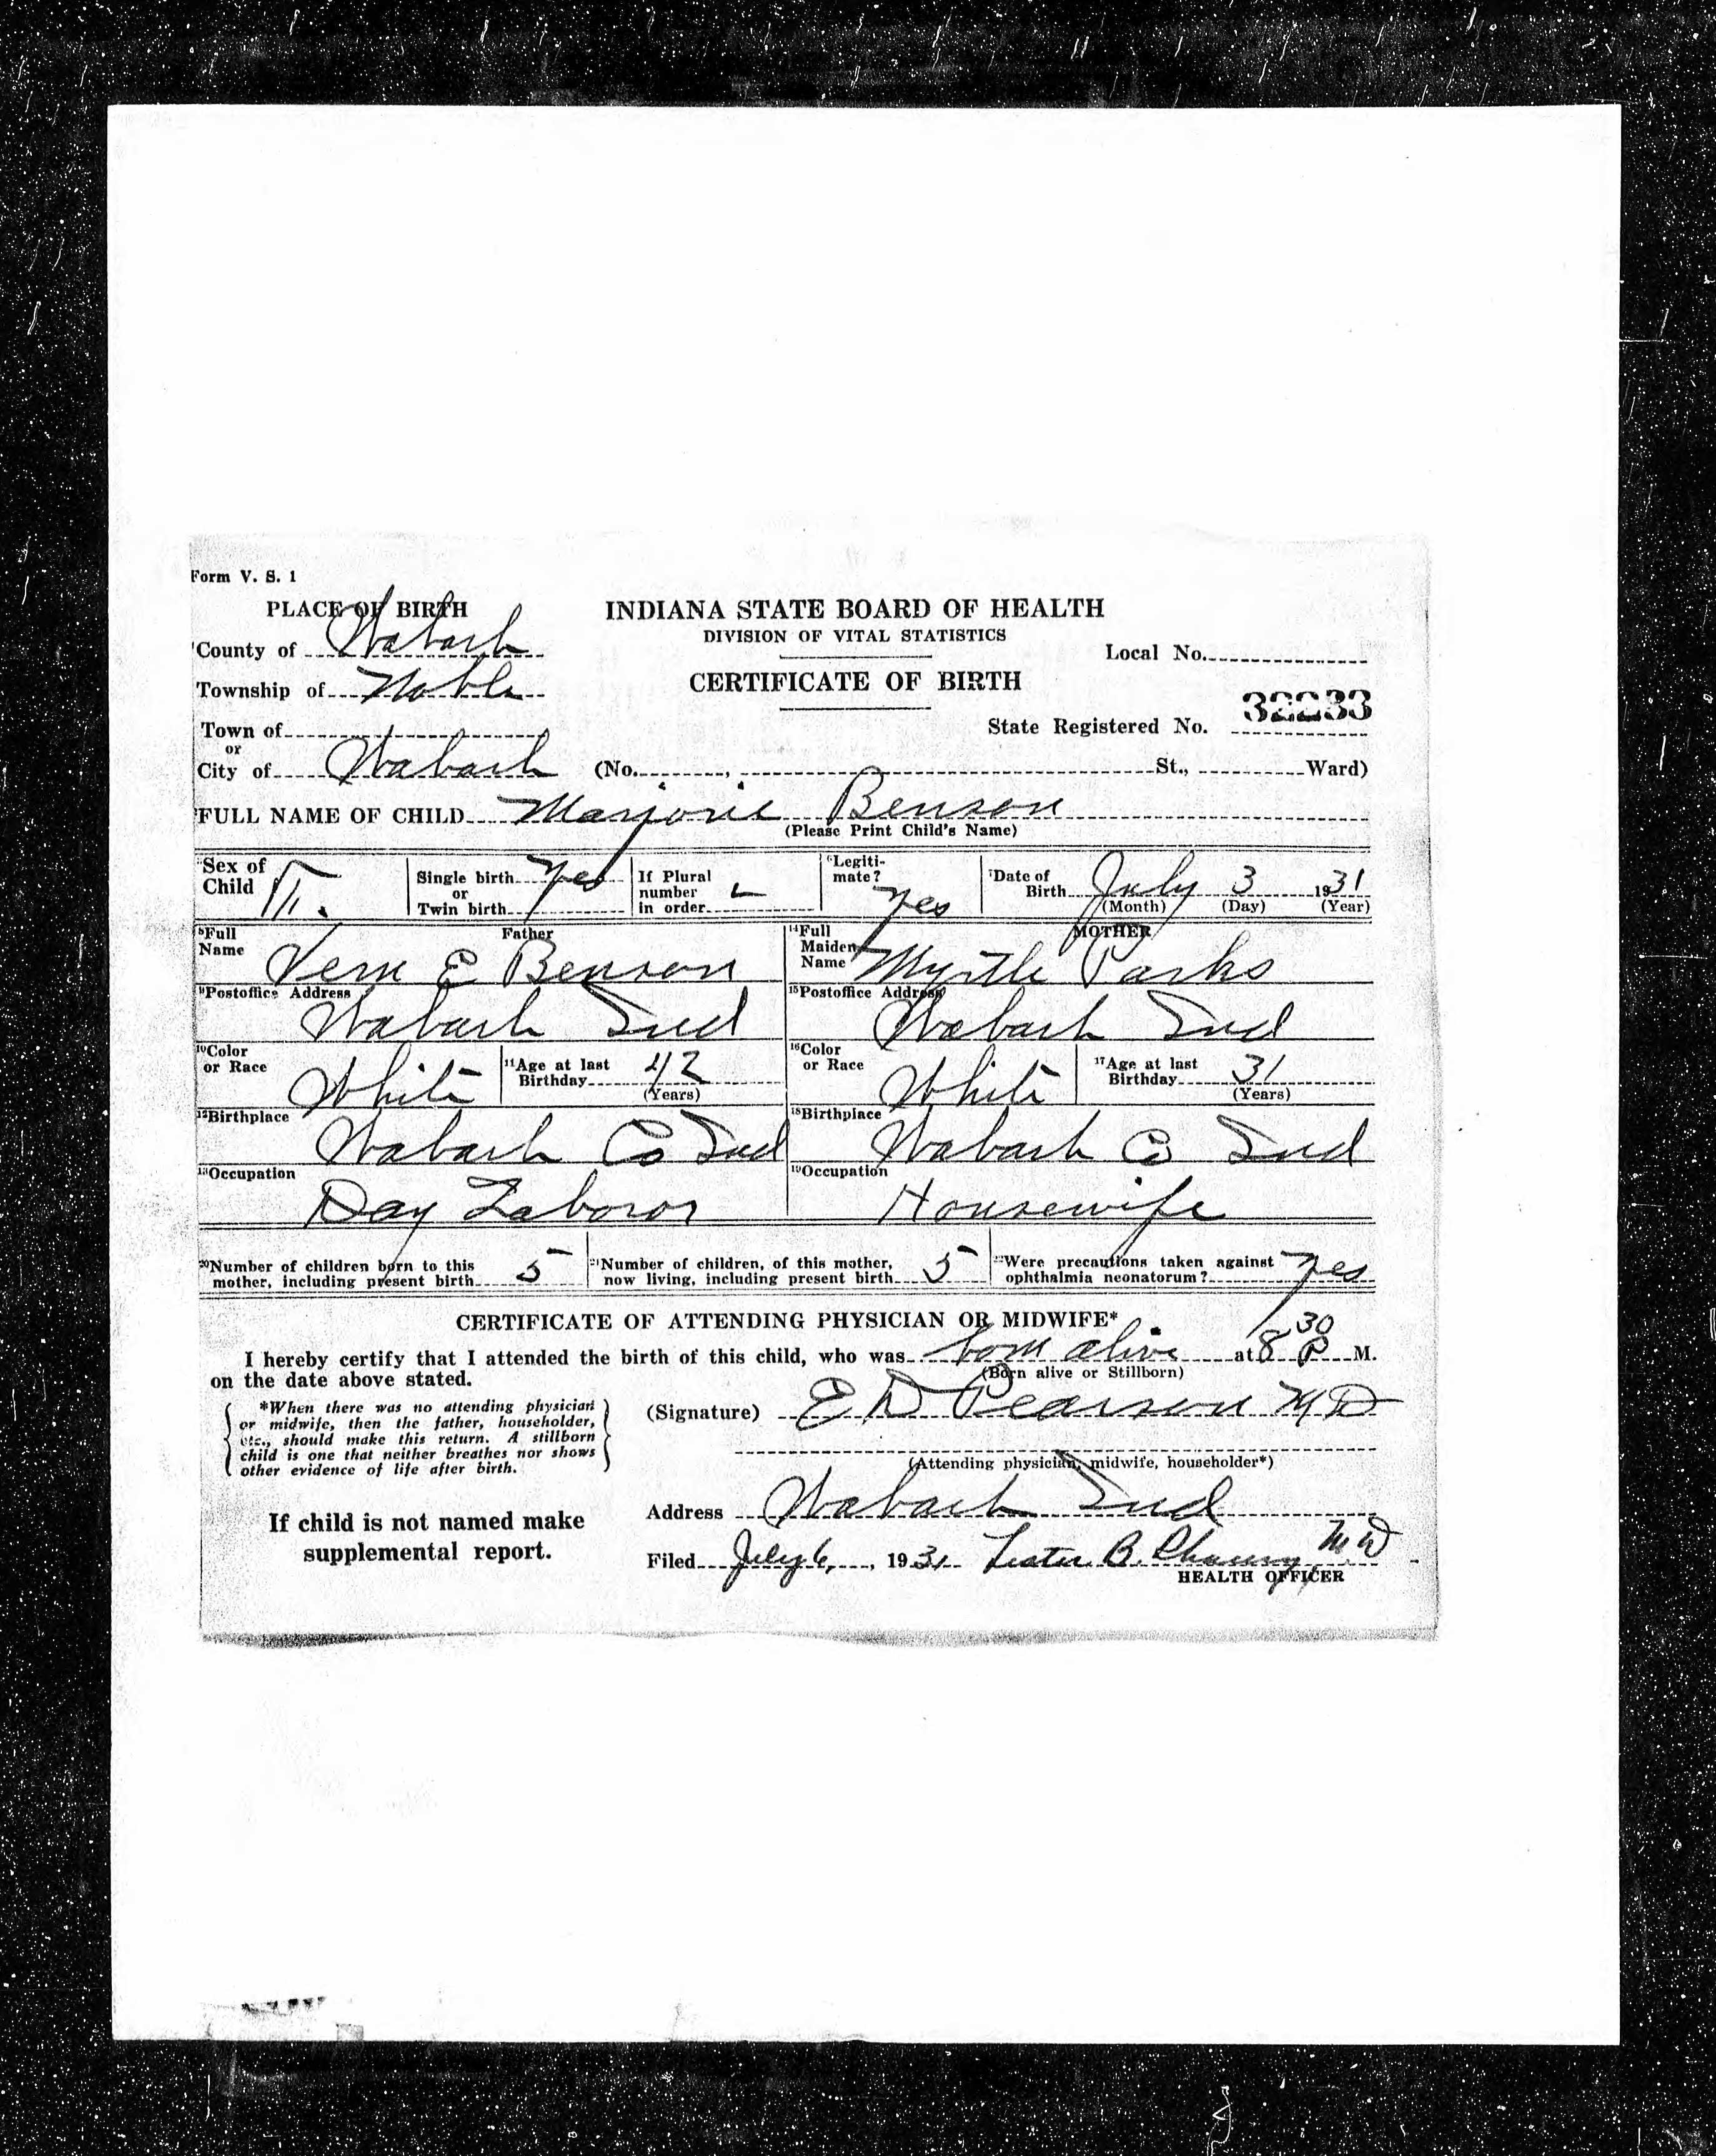 Form V. S. 1
PLACE OF BIRTH
INDIANA STATE BOARD OF HEALTH
DIVISION OF VITAL STATISTICS
County of Wabash
Local No.
Township of Noble
CERTIFICATE OF BIRTH
32233
Town of
State Registered No.
or
City of Wabash (No. , St., Ward)
FULL NAME OF CHILD Marjorie Benson
(Please Print Child's Name)
Sex of Child F.
Single birth yes
or
Twin birth
If Plural
number
in order
Legiti-
mate? yes
Date of
Birth July 3 1931
(Month) (Day) (Year)
Father
Full
Name Vern E Benson
MOTHER
Full
Maiden
Name Myrtle Parks
Postoffice Address
Wabash Ind
Postoffice Address
Wabash Ind
Color
or Race White
Age at last
Birthday 42
(Years)
Color
or Race White
Age at last
Birthday 31
(Years)
Birthplace
Wabash Co Ind
Birthplace
Wabash Co Ind
Occupation
Day Laboror
Occupation
Housewife
20 Number of children born to this
mother, including present birth 5
21 Number of children, of this mother,
now living, including present birth 5
22 Were precautions taken against
ophthalmia neonatorum? yes
CERTIFICATE OF ATTENDING PHYSICIAN OR MIDWIFE*
I hereby certify that I attended the birth of this child, who was born alive at 8 30 P M.
(Born alive or Stillborn)
on the date above stated.
*When there was no attending physician
or midwife, then the father, householder,
etc., should make this return. A stillborn
child is one that neither breathes nor shows
other evidence of life after birth.
(Signature) E D Pearson MD
(Attending physician, midwife, householder*)
Address Wabash Ind
If child is not named make
supplemental report.
Filed July 6, 1931 Lester B. M.D
HEALTH OFFICER